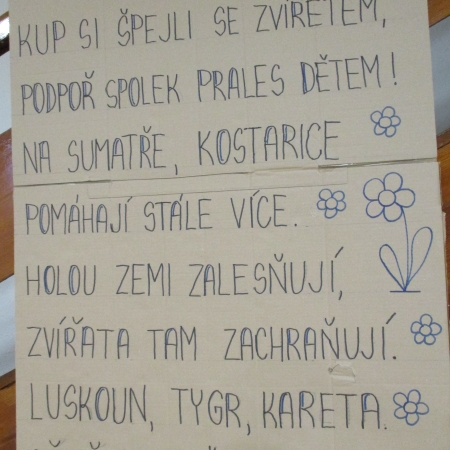 KUP SI ŠPEJLI SE ZVÍŘETEM,
PODPOŘ SPOLEK PRALES DĚTEM!
NA SUMATŘE, KOSTARICE
POMÁHAJÍ STÁLE VÍCE.
HOLOU ZEMI ZALESŇUJÍ,
ZVÍŘATA TAM ZACHRAŇUJÍ.
LUSKOUN, TYGR, KARETA.